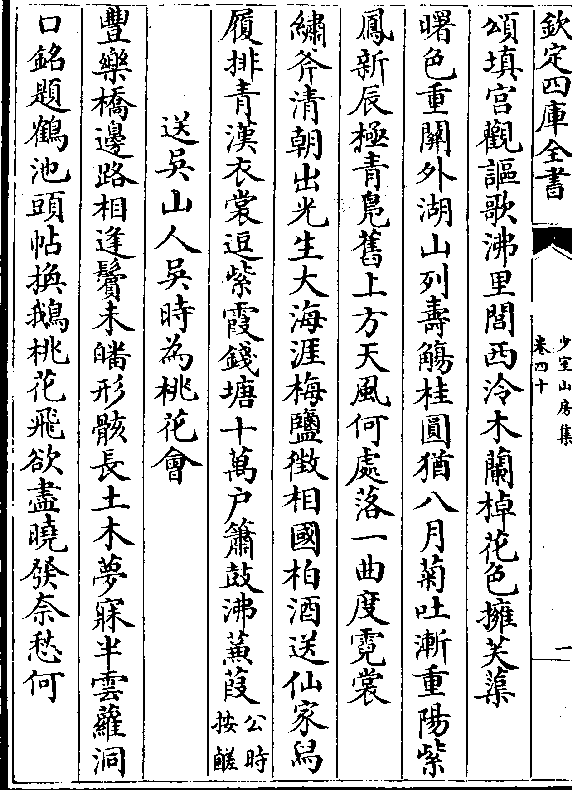 欽定四庫全書
少室山房集
卷四十
一
頌填宫觀謳歌沸里閭西泠木蘭棹花色擁芙蕖
曙色重闗外湖山列壽觴桂圓猶八月菊吐漸重陽紫
鳳新辰極青鳬舊上方天風何處落一曲度霓裳
繡斧清朝出光生大海涯梅鹽徴相國柏酒送仙家舄
履排青漢衣裳逗紫霞錢塘十萬户簫鼓沸蒹葭
公時
按鹺
送吳山人吳時為桃花會
豐樂橋邊路相逢鬢未皤形骸長土木夢寐半雲蘿洞
口銘題鶴池頭帖換鵝桃花飛欲盡曉發奈愁何